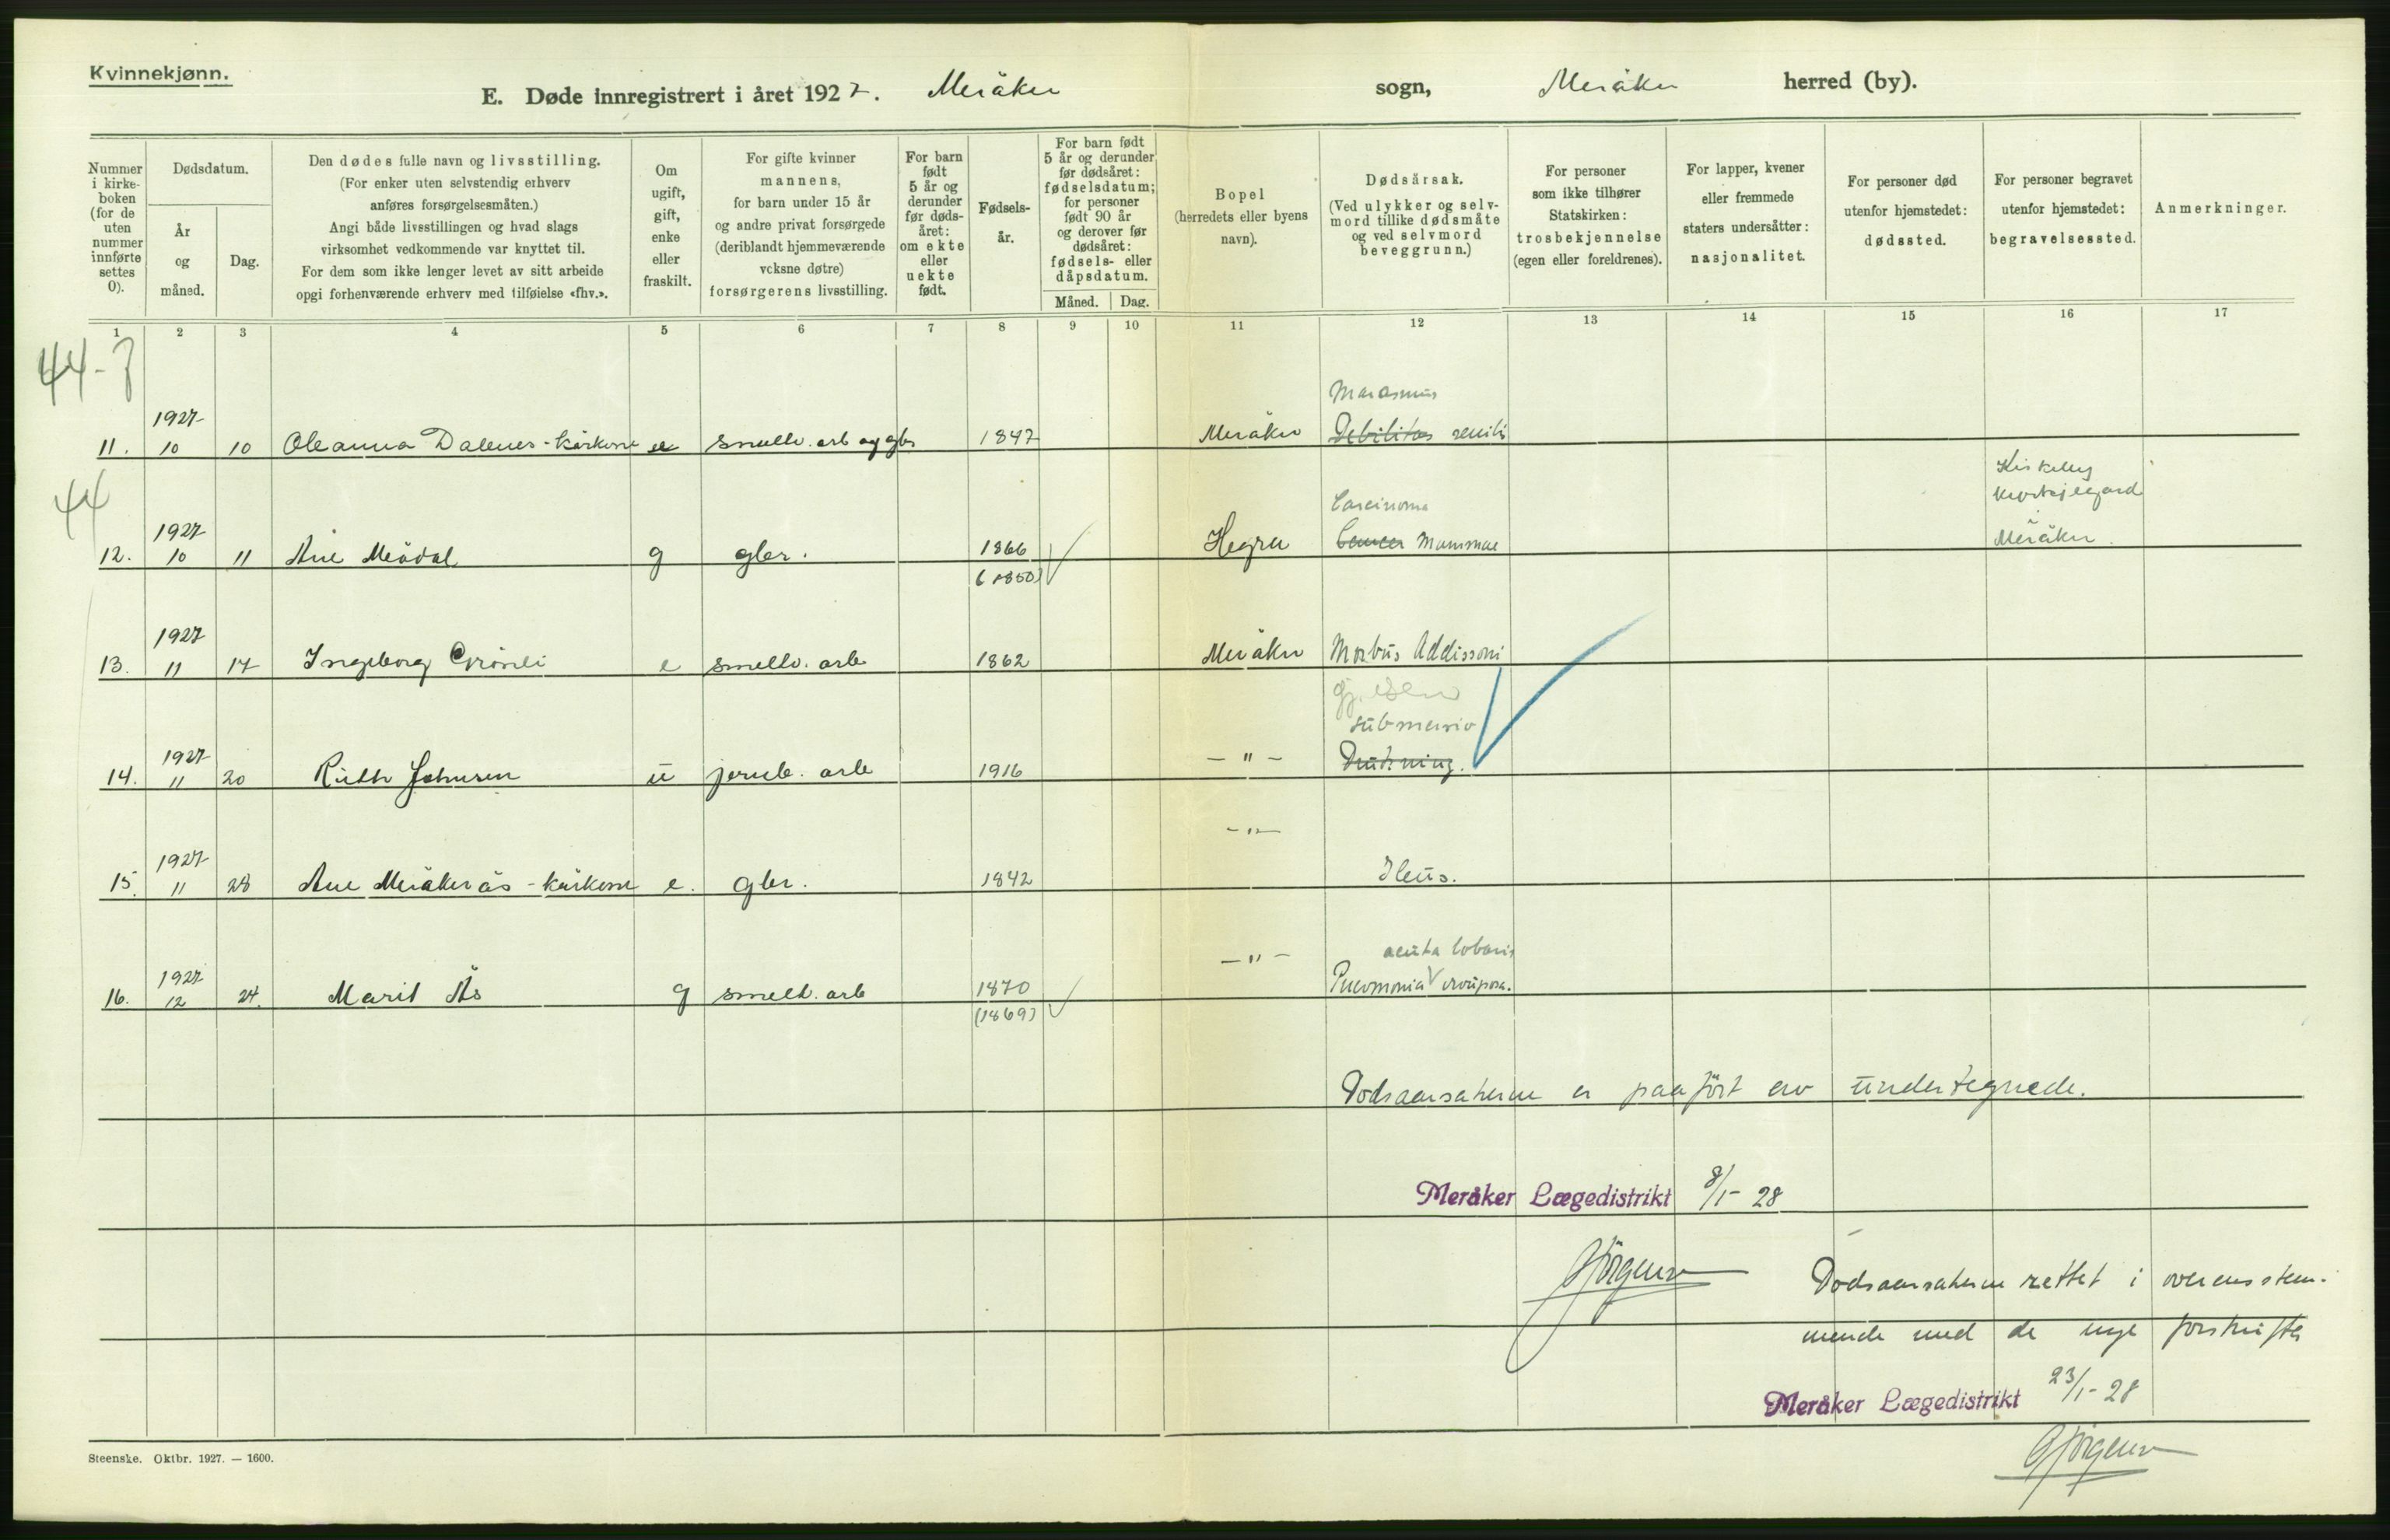 Kvinnekjønn.
E. Døde innregistrert i året 1927. Meråker sogn, Meråker herred (by).
Nummer i kirkeboken (for de uten nummer innførte settes 0).
Dødsdatum.
År og måned.
Dag.
Den dødes fulle navn og livsstilling.
(For enker uten selvstendig erhverv
anføres forsørgelsesmåten.)
Angi både livsstillingen og hvad slags
virksomhet vedkommende var knyttet til.
For dem som ikke lenger levet av sitt arbeide
opgi forhenværende erhverv med tilføielse «fhv.».
Om ugift, gift, enke eller fraskilt.
For gifte kvinner
mannens,
for barn under 15 år
og andre privat forsørgede
(deriblandt hjemmeværende
voksne døtre)
forsørgerens livsstilling.
For barn født 5 år og derunder før dødsåret: om ekte eller uekte født.
Fødselsår.
For barn født
5 år og derunder
før dødsåret:
fødselsdatum;
for personer
født 90 år
og derover før
dødsåret:
fødsels- eller
dåpsdatum.
Måned. Dag.
Bopel
(herredets eller byens
navn).
Dødsårsak.
(Ved ulykker og selv-
mord tillike dødsmåte
og ved selvmord
beveggrunn.)
For personer
som ikke tilhører
Statskirken:
trosbekjennelse
(egen eller foreldrenes).
For lapper, kvener
eller fremmede
staters undersåtter:
nasjonalitet.
For personer død
utenfor hjemstedet:
dødssted.
For personer begravet
utenfor hjemstedet:
begravelsessted.
Anmerkninger.
1 2 3 4 5 6 7 8 9 10 11 12 13 14 15 16 17
44-7
Marasmus
1927
11. 10 10 Oleanna Dalenes - kårkone e smeltv. arb og gbr 1847 Meråker Debilitas senilis
44
Kirkeby
Carcinoma
1927
12. 10 11 Ane Meådal g gbr. 1866 Hegra Cancer Mammae Meråker.
(1850)
1927
13. 11 17 Ingeborg Grönli e smeltv. arb 1862 Meråker Morbus Addissoni
submersio
1927
14. 11 20 Ruth Johnsen u jernb. arb 1916 - " - Drukning.
- " -
1927
15. 11 28 Ane Meråkerås - kårkone e. gbr. 1842 Ileus.
acuta lobaris
1927 - " -
16. 12 24. Marit Ås g smelt. arb 1870 Pneumonia crouposa.
(1869)
Dødsaarsakerne er paaført av undertegnede.
Meråker Lægedistrikt 8/1-28
Dødsaarsakerne rettet i overensstem-
mende med de nye forskrifter
Meråker Lægedistrikt 23/1-28
Steenske. Oktbr. 1927. — 1600.